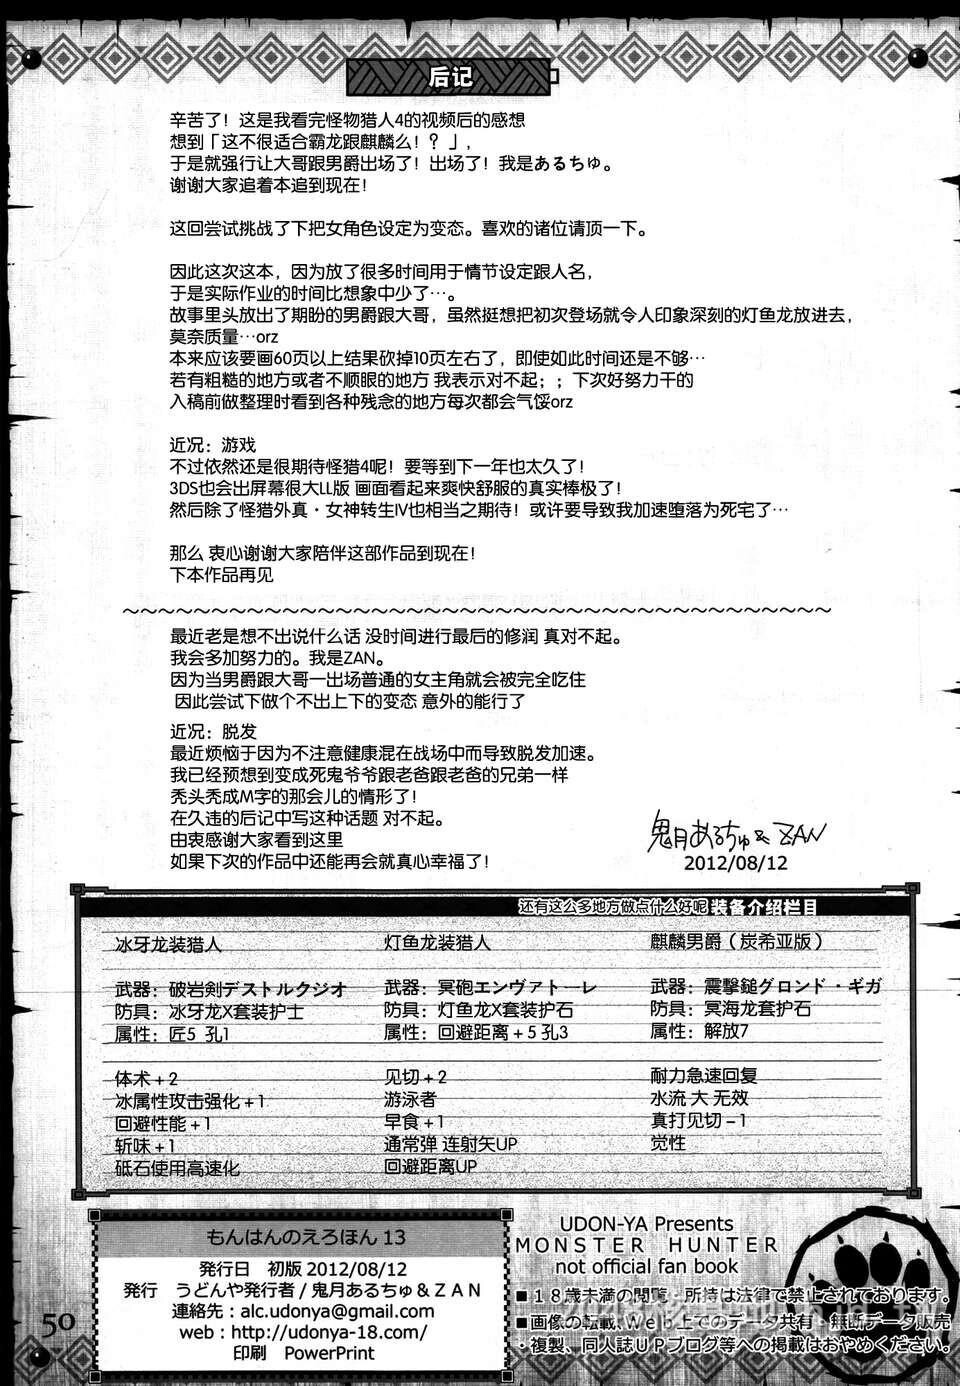 后记
辛苦了！这是我看完怪物猎人4的视频后的感想
想到「这不很适合霸龙跟麒麟么！？」，
于是就强行让大哥跟男爵出场了！出场了！我是あるちゅ。
谢谢大家追着本追到现在！
这回尝试挑战了下把女角色设定为变态。喜欢的诸位请顶一下。
因此这次这本，因为放了很多时间用于情节设定跟人名，
于是实际作业的时间比想象中少了…。
故事里头放出了期盼的男爵跟大哥，虽然挺想把初次登场就令人印象深刻的灯鱼龙放进去，
莫奈质量…orz
本来应该要画60页以上结果砍掉10页左右了，即使如此时间还是不够…
若有粗糙的地方或者不顺眼的地方 我表示对不起；；下次好努力干的
入稿前做整理时看到各种残念的地方每次都会气馁orz
近况：游戏
不过依然还是很期待怪猎4呢！要等到下一年也太久了！
3DS也会出屏幕很大LL版 画面看起来爽快舒服的真实棒极了！
然后除了怪猎外真・女神转生Ⅳ也相当之期待！或许要导致我加速堕落为死宅了…
那么 衷心谢谢大家陪伴这部作品到现在！
下本作品再见
～～～～～～～～～～～～～～～～～～～～～～～～～～～～～～～～～～～～～～～～
最近老是想不出说什么话 没时间进行最后的修润 真对不起。
我会多加努力的。我是ZAN。
因为当男爵跟大哥一出场普通的女主角就会被完全吃住
因此尝试下做个不出上下的变态 意外的能行了
近况：脱发
最近烦恼于因为不注意健康混在战场中而导致脱发加速。
我已经预想到变成死鬼爷爷跟老爸跟老爸的兄弟一样
秃头秃成M字的那会儿的情形了！
在久违的后记中写这种话题 对不起。
由衷感谢大家看到这里
如果下次的作品中还能再会就真心幸福了！
鬼月あるちゅ＆ZAN
2012/08/12
还有这么多地方做点什么好呢 装备介绍栏目
冰牙龙装猎人
武器：破岩剣デストルクジオ
防具：冰牙龙X套装护士
属性：匠5 孔1
体术＋2
冰属性攻击强化＋1
回避性能＋1
斩味＋1
砥石使用高速化
灯鱼龙装猎人
武器：冥砲エンヴァトーレ
防具：灯鱼龙X套装护石
属性：回避距离＋5 孔3
见切＋2
游泳者
早食＋1
通常弹 连射矢UP
回避距离UP
麒麟男爵（炭希亚版）
武器：震撃鎚グロンド・ギガ
防具：冥海龙套护石
属性：解放7
耐力急速回复
水流 大 无效
真打见切－1
觉性
もんはんのえろほん 13
発行日 初版 2012/08/12
発行 うどんや発行者 / 鬼月あるちゅ＆ＺＡＮ
連絡先：alc.udonya@gmail.com
web：http://udonya-18.com/
印刷 PowerPrint
UDON-YA Presents
MONSTER HUNTER
not official fan book
■１８歳未満の閲覧、所持は法律で禁止されております。
■画像の転載、Ｗｅｂ上でのデータ共有、無断データ販売
・複製、同人誌ＵＰブログ等への掲載はおやめください。
50